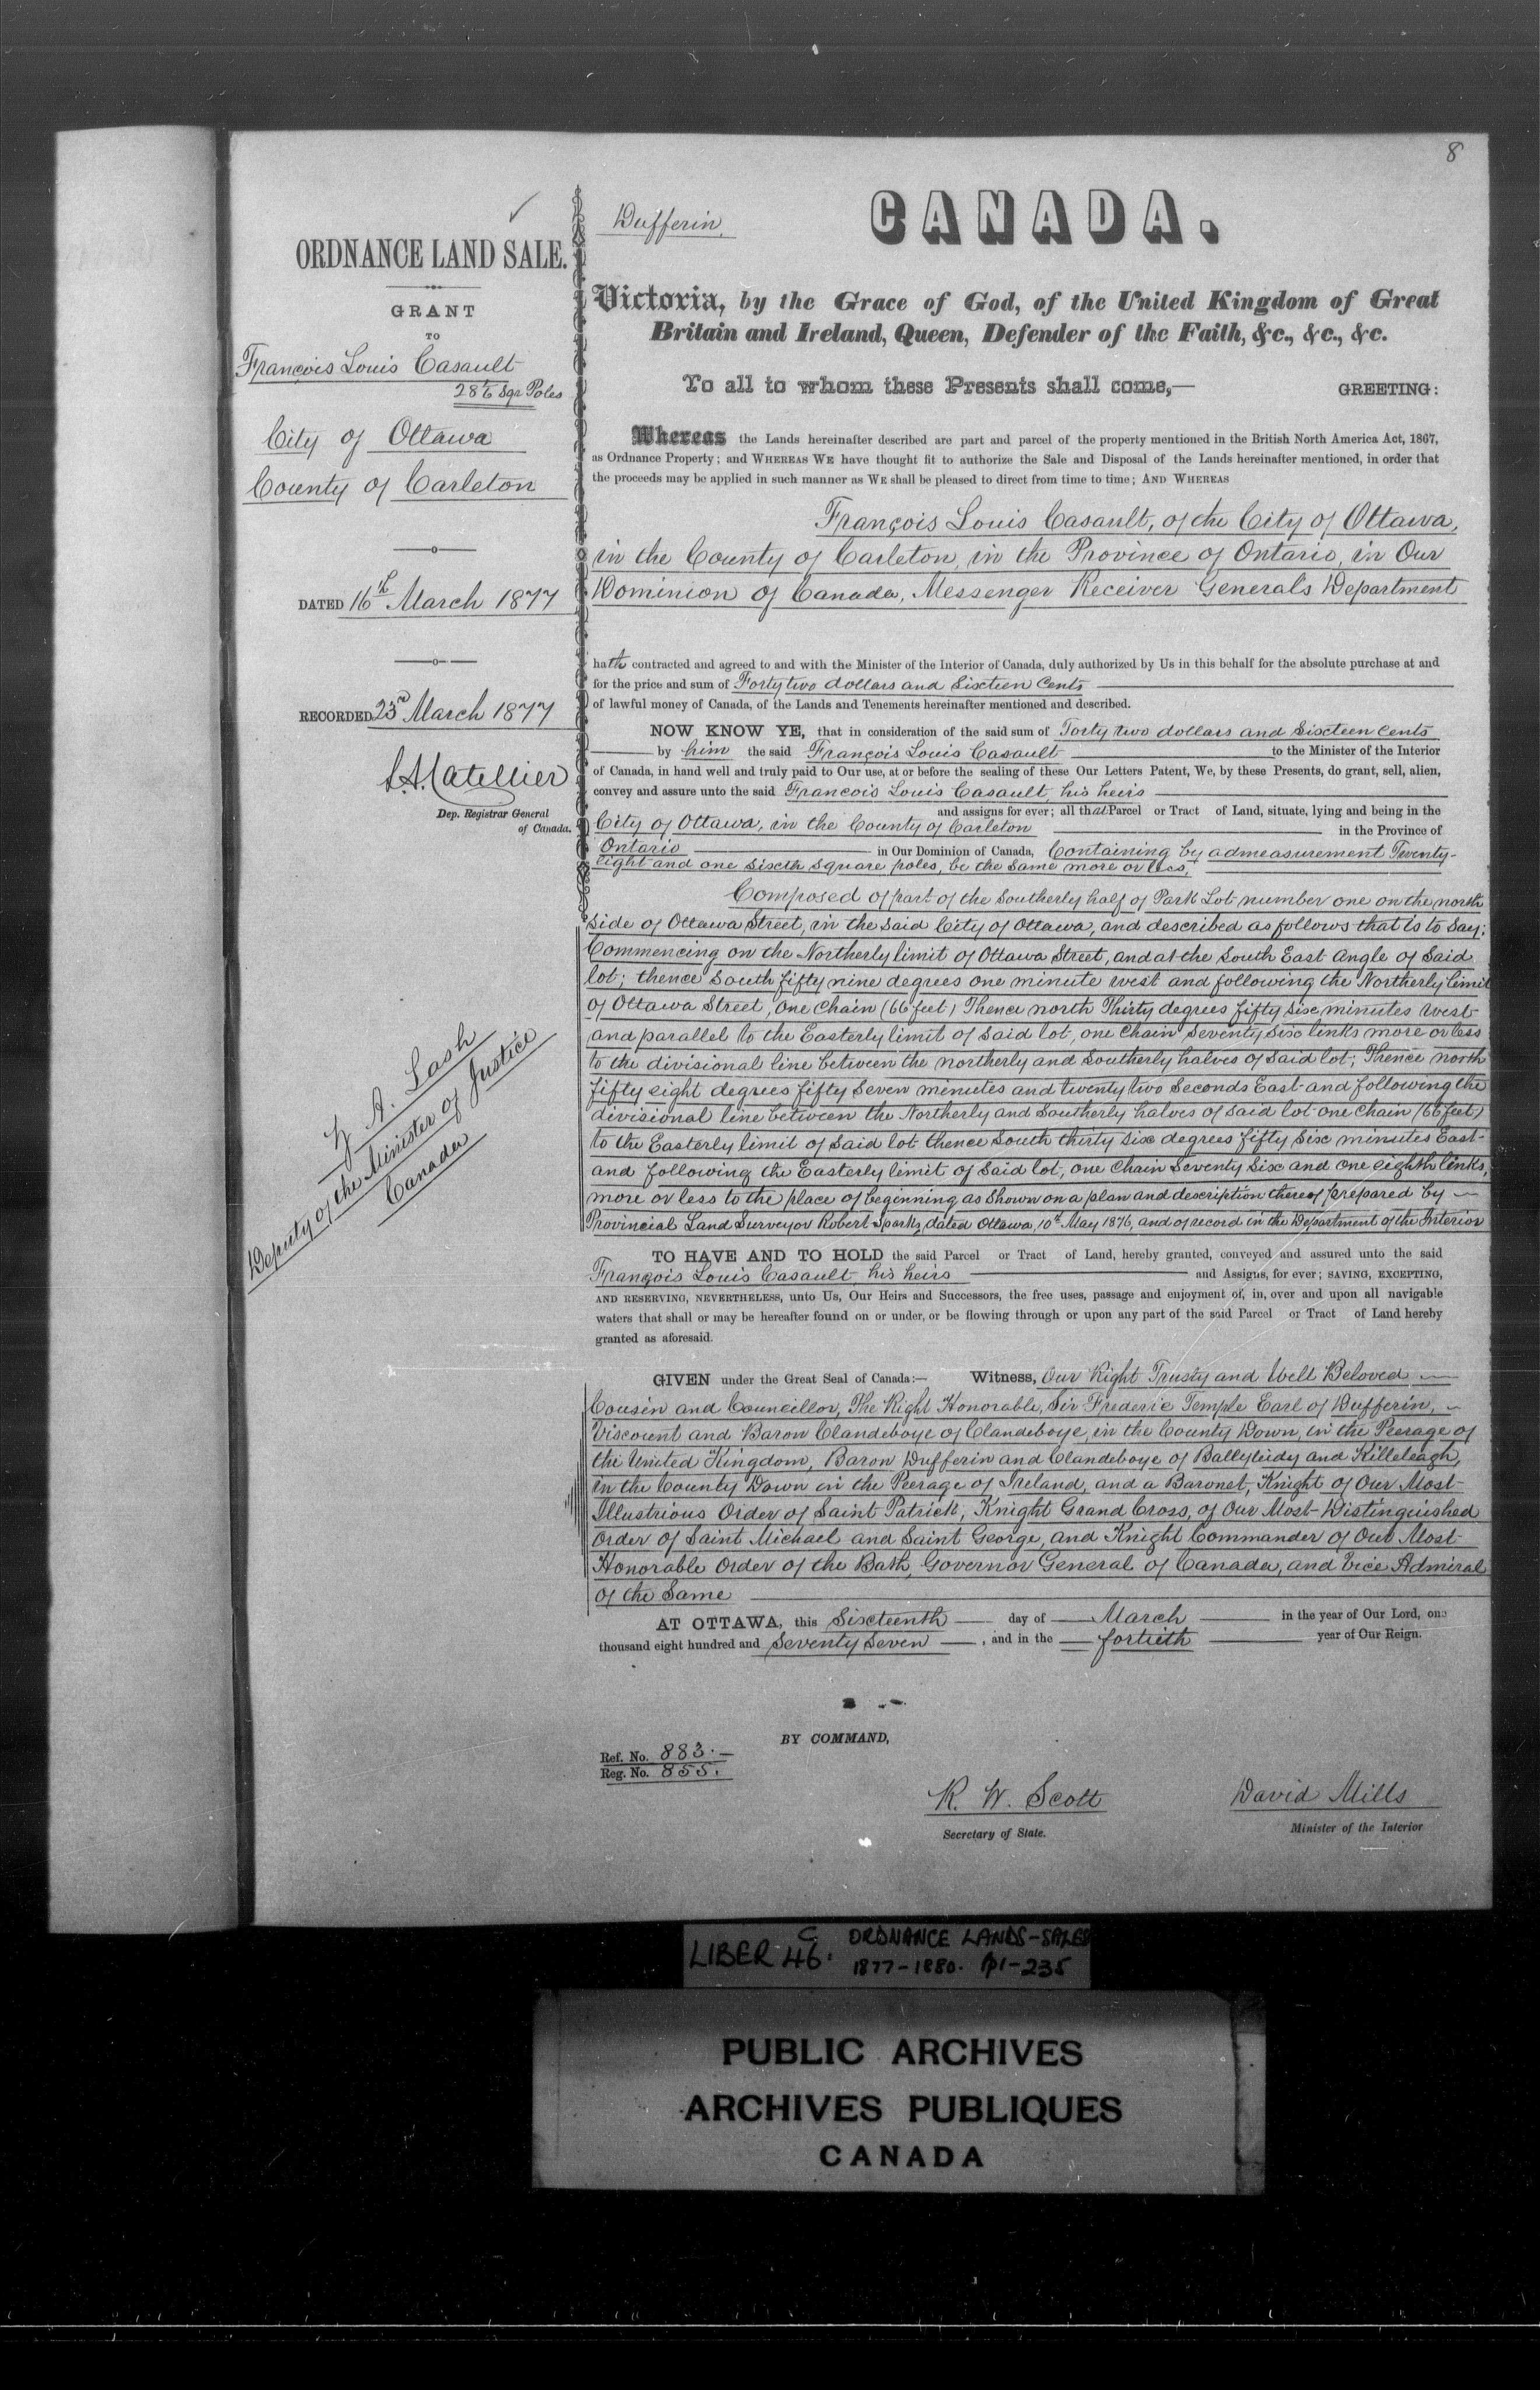 8
ORDNANCE LAND SALE.
GRANT
TO
François Louis Casault
28 1/6 Sqr Poles
City of Ottawa
County of Carleton
DATED 16th March 1877
RECORDED 23rd March 1877
L.A. Catellier
Dep. Registrar General
of Canada.
Z. A. Lash
Deputy of the Minister of Justice
Canada
Dufferin,
CANADA.
Victoria, by the Grace of God, of the United Kingdom of Great
Britain and Ireland, Queen, Defender of the Faith, &c., &c., &c.
To all to whom these Presents shall come,— GREETING:
Whereas the Lands hereinafter described are part and parcel of the property mentioned in the British North America Act, 1867,
as Ordnance Property; and WHEREAS WE have thought fit to authorize the Sale and Disposal of the Lands hereinafter mentioned, in order that
the proceeds may be applied in such manner as WE shall be pleased to direct from time to time; AND WHEREAS
François Louis Casault, of the City of Ottawa,
in the County of Carleton, in the Province of Ontario, in Our
Dominion of Canada, Messenger Receiver Generals Department
hath contracted and agreed to and with the Minister of the Interior of Canada, duly authorized by Us in this behalf for the absolute purchase at and
for the price and sum of Forty two dollars and Sixteen Cents
of lawful money of Canada, of the Lands and Tenements hereinafter mentioned and described.
NOW KNOW YE, that in consideration of the said sum of Forty two dollars and Sixteen Cents
by him the said François Louis Casault to the Minister of the Interior
of Canada, in hand well and truly paid to Our use, at or before the sealing of these Our Letters Patent, We, by these Presents, do grant, sell, alien,
convey and assure unto the said Francois Louis Casault, his heirs
and assigns for ever; all that Parcel or Tract of Land, situate, lying and being in the
City of Ottawa, in the County of Carleton in the Province of
Ontario in Our Dominion of Canada, Containing by admeasurement Twenty-
eight and one sixth square poles, be the same more or less,
Composed of part of the Southerly half of Park Lot number one on the north
side of Ottawa Street, in the said City of Ottawa, and described as follows that is to say:
Commencing on the Northerly limit of Ottawa Street, and at the South East Angle of said
lot; thence South fifty nine degrees one minute west and following the Northerly limit
of Ottawa Street, one Chain (66 feet) Thence north Thirty degrees fifty six minutes west
and parallel to the Easterly limit of said lot, one Chain Seventy Six links more or less
to the divisional line between the northerly and Southerly halves of said lot; Thence north
fifty eight degrees fifty seven minutes and twenty two seconds East and following the
divisional line between the Northerly and Southerly halves of said lot one Chain (66 feet)
to the Easterly limit of said lot thence South thirty six degrees fifty six minutes East
and following the Easterly limit of said lot, one Chain Seventy Six and one eighth links,
more or less to the place of beginning as shown on a plan and description thereof prepared by
Provincial Land Surveyor Robert Sparks, dated Ottawa, 10th May 1876, and of record in the Department of the Interior
TO HAVE AND TO HOLD the said Parcel or Tract of Land, hereby granted, conveyed and assured unto the said
François Louis Casault, his heirs and Assigns, for ever; SAVING, EXCEPTING,
AND RESERVING, NEVERTHELESS, unto Us, Our Heirs and Successors, the free uses, passage and enjoyment of, in, over and upon all navigable
waters that shall or may be hereafter found on or under, or be flowing through or upon any part of the said Parcel or Tract of Land hereby
granted as aforesaid.
GIVEN under the Great Seal of Canada:— Witness, Our Right Trusty and Well Beloved
Cousin and Councillor, The Right Honorable, Sir Frederic Temple Earl of Dufferin,
Viscount and Baron Clandeboye of Clandeboye, in the County Down, in the Peerage of
the United Kingdom, Baron Dufferin and Clandeboye of Ballyleidy and Killeleagh,
in the County Down in the Peerage of Ireland, and a Baronet, Knight of Our Most
Illustrious Order of Saint Patrick, Knight Grand Cross, of Our Most Distinguished
Order of Saint Michael and Saint George, and Knight Commander of Our Most
Honorable Order of the Bath, Governor General of Canada, and Vice Admiral
of the Same
AT OTTAWA, this Sixteenth day of March in the year of Our Lord, one
thousand eight hundred and Seventy Seven, and in the fortieth year of Our Reign.
BY COMMAND,
Ref. No. 883.
Reg. No. 855.
R. W. Scott
Secretary of State.
David Mills
Minister of the Interior
LIBER 46. C ORDNANCE LANDS-SALES
1877-1880. p1-235
PUBLIC ARCHIVES
ARCHIVES PUBLIQUES
CANADA